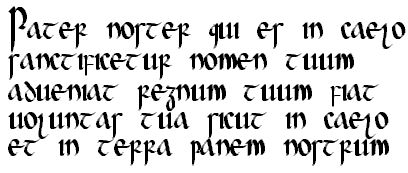 Pater noster qui es in caelo
sanctificetur nomen tuum
adueniat regnum tuum fiat
uoluntas tua sicut in caelo
et in terra panem nostrum